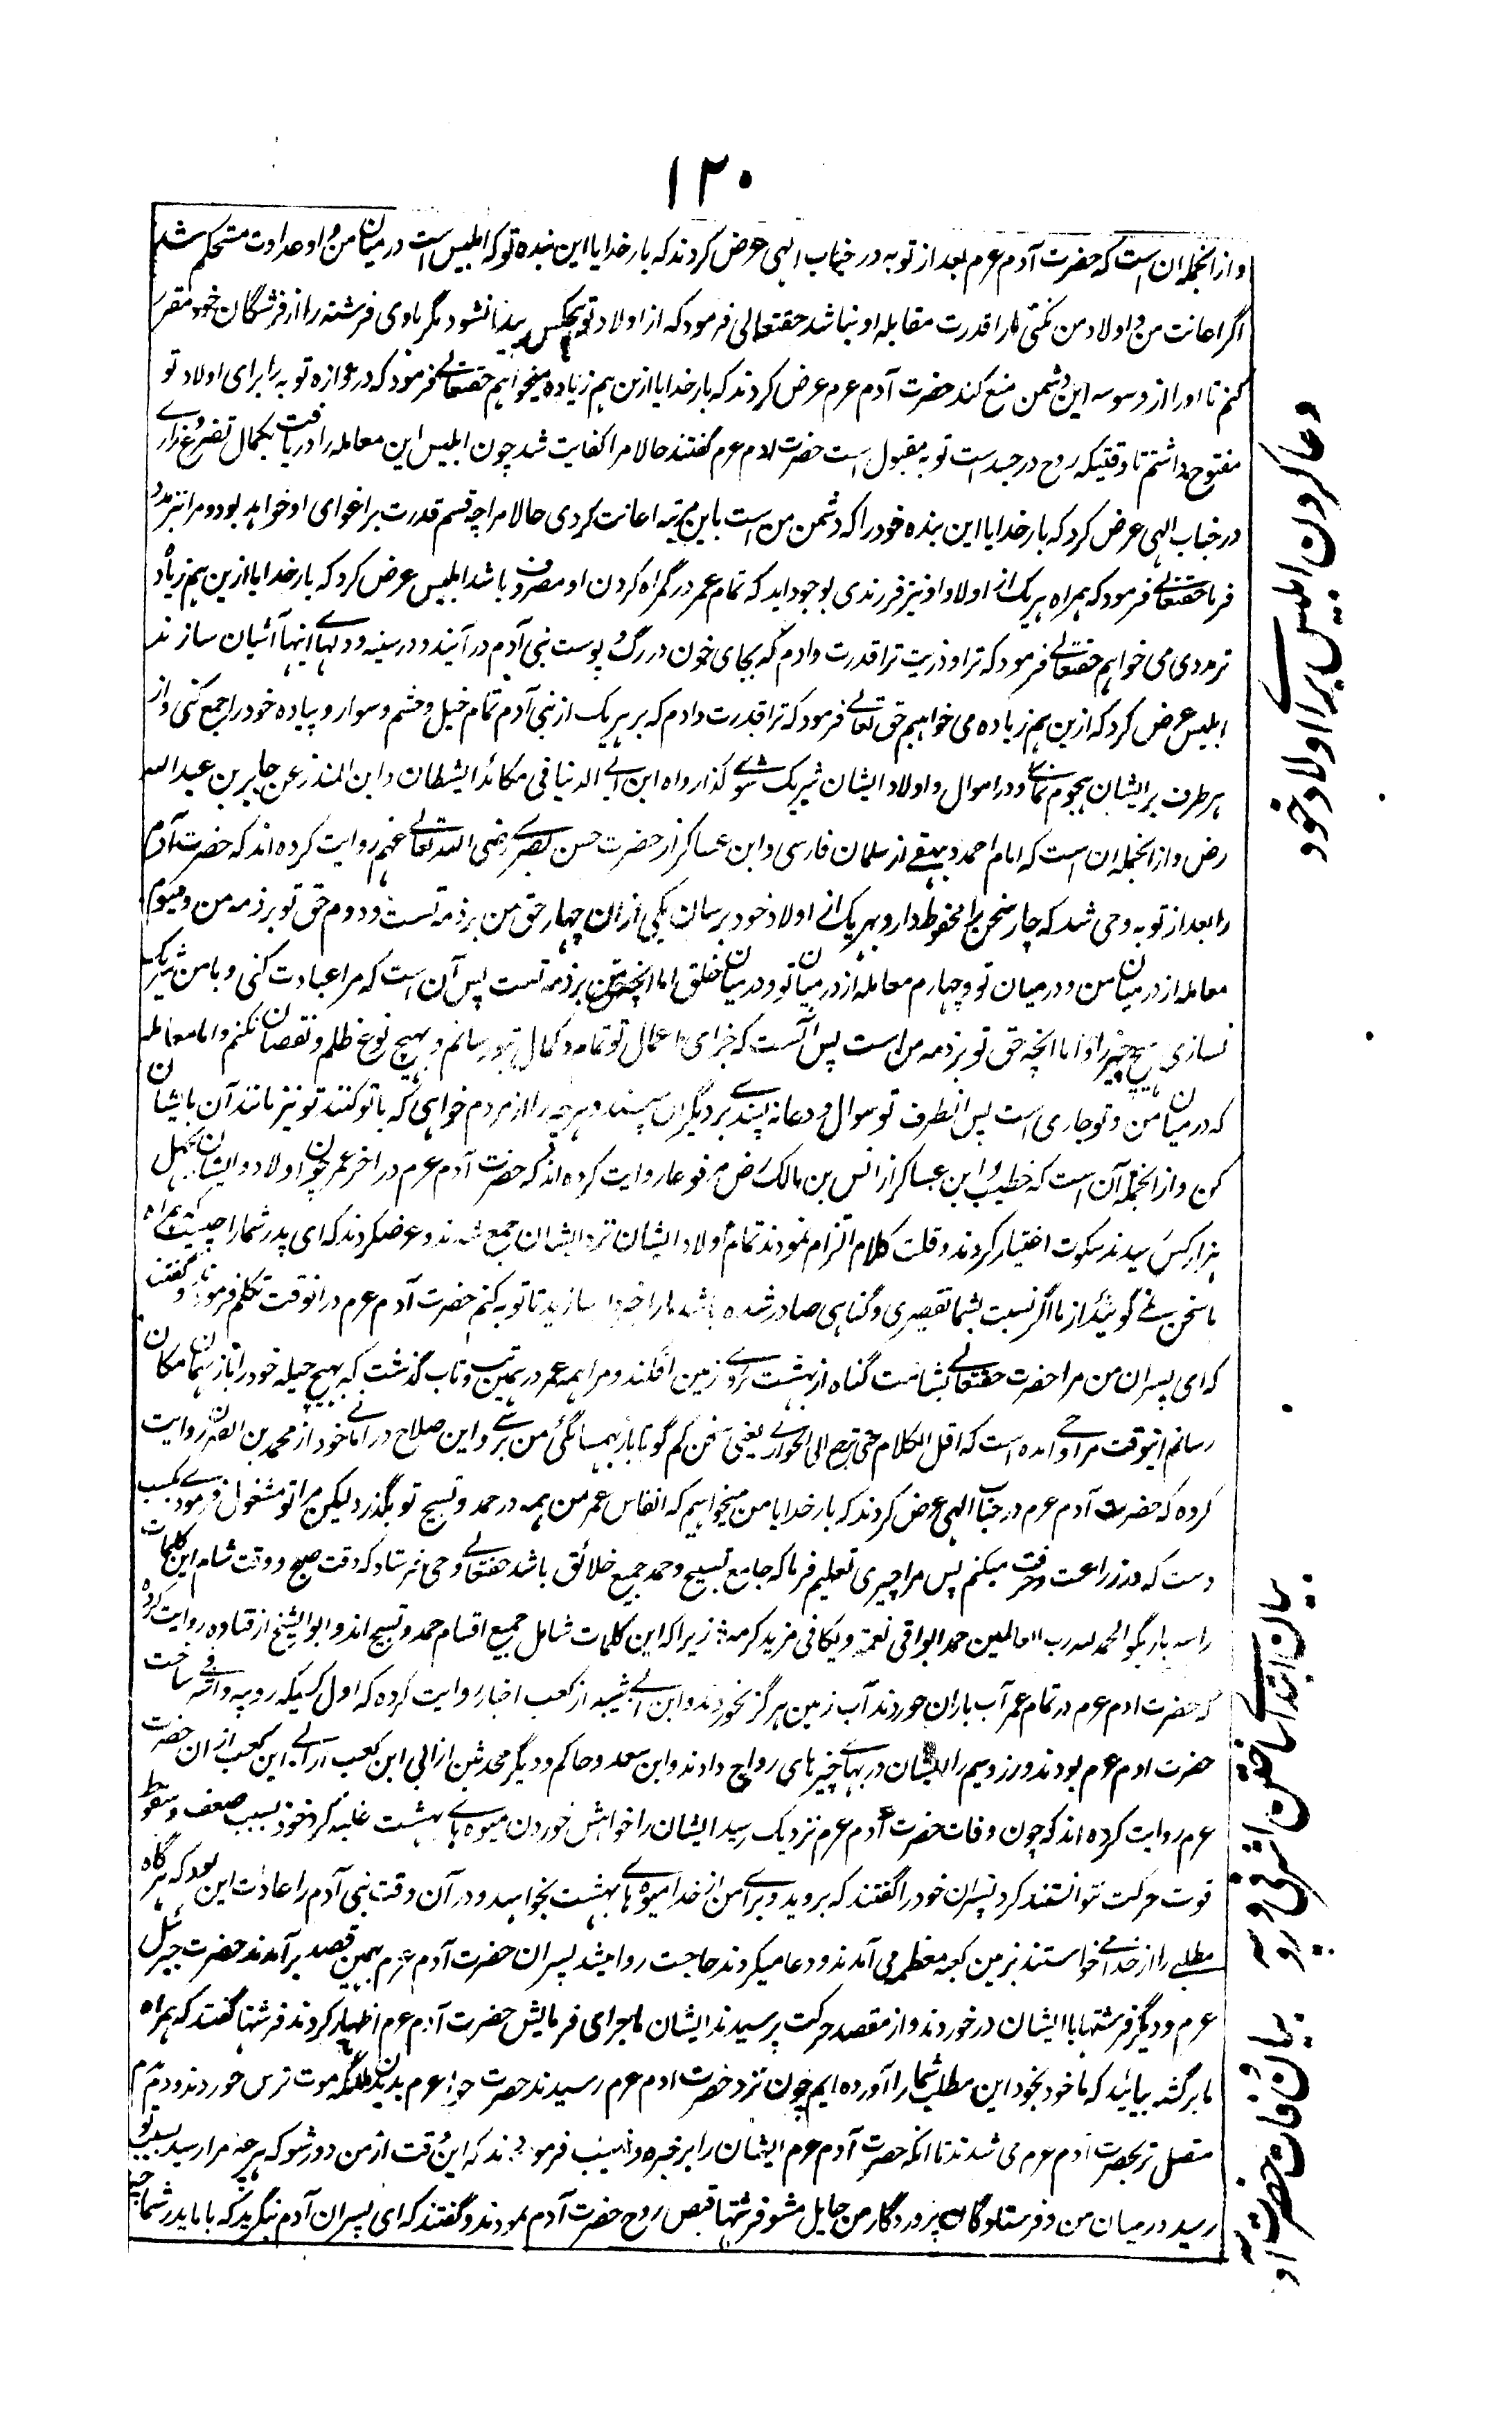 ۱۲۰
و از انجمله ان است که حضرت آدم عرم بعد از توبه در جناب الهی عرض کردند که بار خدایا این بنده تو که ابلیس است در میان من و او عداوت مستحکم شد
اگر اعانت من و اولاد من نکنی مارا قدرت مقابله او نباشد حقتعالی فرمود که از اولاد تو هیچکس پیدا نشود مگر با وی فرشته را از فرشتگان خود مقرر
کنم تا او را از وسوسه این دشمن منع کند حضرت آدم عرم عرض کردند که بار خدایا ازین هم زیاده میخواهم حقتعالی فرمود که دروازه توبه را برای اولاد تو
مفتوح داشتم تا وقتیکه روح در جسد است توبه مقبول است حضرت ادم عرم گفتند حالا مرا کفایت شد چون ابلیس این معامله را دریافت بکمال تضرع و زاری
در جناب الهی عرض کرد که بار خدایا این بنده خود را که دشمن من است باین مرتبه اعانت کردی حالا مرا چه قسم قدرت بر اغوای او خواهد بود و مرا نیز مدد
فرما حقتعالی فرمود که همراه هر یک از اولاد او نیز فرزندی بوجود اید که تمام عمر در گمراه کردن او مصروف باشد ابلیس عرض کرد که بار خدایا ازین هم زیاده
تر مددی می خواهم حقتعالی فرمود که ترا و ذریت ترا قدرت دادم که بجای خون در رگ و پوست بنی آدم در آیند و در سینه و دلهای اینها آشیان سازند
ابلیس عرض کرد که ازین هم زیاده می خواهم حق تعالی فرمود که ترا قدرت دادم که بر هر یک از بنی آدم تمام خیل و حشم و سوار و پیاده خود را جمع کنی و از
هر طرف بر ایشان هجوم نمائی و در اموال و اولاد ایشان شریک شوی کذا رواه ابن ابی الدنیا فی مکائد الشیطان و ابن المنذر عن جابر بن عبد الله
رض و از انجمله ان است که امام احمد و بیهقی از سلمان فارسی و ابن عساکر از حضرت حسن بصری رضی الله تعالی عنهم روایت کرده اند که حضرت آدم
را بعد از توبه وحی شد که چار سخن را محفوظ دار و بهر یک از اولاد خود برسان یکی ازان چهار حق من بر ذمه تست و دوم حق تو بر ذمه من و سیوم
معامله از درمیان من و درمیان تو و چهارم معامله از درمیان تو و درمیان خلق اما انچه حق من بر ذمه تست پس آن است که مرا عبادت کنی و با من شریک
نسازی هیچ چیز را و اما انچه حق تو بر ذمه من است پس آنست که جزای اعمال تو تمام و کمال بتو رسانم و بهیچ نوع ظلم و نقصان نکنم و اما معامله
که درمیان من و تو جاری است پس از طرف تو سوال و دعا نه پسندی بر دیگران مپسند و هرچه را از مردم خواهی که با تو کنند تو نیز مانند آن با ایشان
کن و از انجمله آن است که خطیب و ابن عساکر از انس بن مالک رض مرفوعا روایت کرده اند که حضرت آدم عرم در اخر عمر چون اولاد و ایشان بچهل
هزار کس رسیدند سکوت اختیار کردند و قلت کلام التزام نمودند تمام اولاد ایشان نزد ایشان جمع شدند و عرض کردند که ای پدر شما را چیست که همراه
ما سخن نمی گوئید از ما اگر نسبت بشما تقصیری و گناهی صادر شده باشد ما را خبردار سازید تا توبه کنیم حضرت آدم عرم درانوقت تکلم فرمودند و گفتند
که ای پسران من مرا حضرت حقتعالی بشامت گناه از بهشت بروی زمین افگند و مرا همه عمر درهمین تب و تاب گذشت که بهیچ حیله خود را باز بهمان مکان
رسانم اینوقت مرا وحی آمده است که اقل الکلام حتی ترجع الی جواری یعنی سخن کم گو تا باز بهمسائگی من برسی و ابن صلاح در امالی خود از محمد بن النضر روایت
کرده که حضرت آدم عرم در جناب الهی عرض کردند که بار خدایا من میخواهم که انفاس عمر من همه در حمد و تسبیح تو بگذرد لیکن مرا تو مشغول فرمودی بکسب
دست که در زراعت و حرفت میکنم پس مرا چیزی تعلیم فرما که جامع تسبیح و حمد جمیع خلائق باشد حقتعالی وحی فرستاد که وقت صبح و وقت شام این کلمات
را سه بار بگو الحمد لله رب العالمین حمدا یوافی نعمه و یکافی مزید کرمه زیرا که این کلمات شامل جمیع اقسام حمد و تسبیح اند و ابو الشیخ از قتاده روایت کرده
که حضرت ادم عرم در تمام عمر آب باران خوردند آب زمین هرگز نخوردند و ابن ابی شیبه از کعب احبار روایت کرده که اول کسیکه روپیه و اشرفی ساخت
حضرت ادم عرم بودند و زر و سیم را ایشان در بهای چیزهای رواج دادند و ابن سعد و حاکم و دیگر محدثین از ابی ابن کعب آرنده این کعب از ان حضرت
عرم روایت کرده اند که چون وفات حضرت آدم عرم نزدیک رسید ایشان را خواهش خوردن میوه های بهشت غلبه کرد خود بسبب ضعف و سقوط
قوت حرکت نتوانستند کرد پسران خود را گفتند که بروید و برای من از خدا میوه های بهشت بخواهید و در آن وقت بنی آدم را عادت این بود که هرگاه
مطلبی را از خدا می خواستند بزمین کعبه معظمه می آمدند و دعا میکردند حاجت روا میشد پسران حضرت آدم عرم بهمین قصد برآمدند حضرت جبرئیل
عرم و دیگر فرشتها با ایشان درخوردند و از مقصد حرکت پرسیدند ایشان ماجرای فرمایش حضرت آدم عرم اظهار کردند فرشتها گفتند که همراه
ما برگشته بیائید که ما خود بخود این مطلب شما را آورده ایم چون نزد حضرت ادم عرم رسیدند حضرت حوا عرم بدیدن ملائکه موت ترس خوردند و دمبدم
متصل تر بحضرت آدم عرم می شدند تا انکه حضرت آدم عرم ایشان را فرمودند که این وقت از من دور شو که هرچه مرا رسید بسبب تو
رسید درمیان من و فرستادگان پروردگار من حایل مشو فرشتها قبض روح حضرت آدم نمودند و گفتند که ای پسران آدم بنگرید که با پدر شما
دعا کردن ابلیس برا اولاد خود
بیان ابتدای ساختن اشرفی و روپیه
بیان وفات حضرت آدم